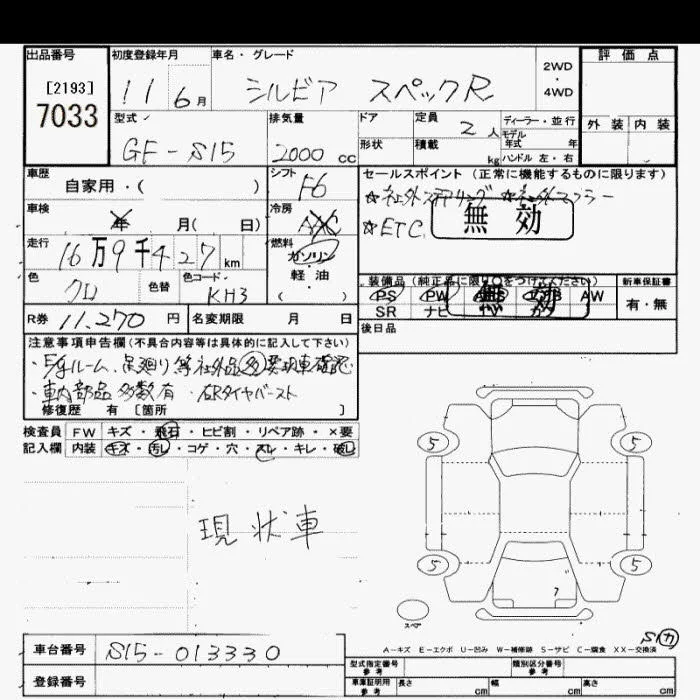 出品番号 初度登録年月 車名・グレード 評価点
[2193]
7033
11 6月 シルビア スペックR
2WD
・
4WD
外装 内装
型式 排気量 ドア 定員 ディーラー・並行
GF-S15 2000cc 2人 モデル年式 年
形状 積載 kg ハンドル 左・右
車歴 シフト セールスポイント(正常に機能するものに限ります)
自家用・( ) F6 ☆社外ステアリング ☆社外マフラー
車検 年 月( 日) 冷房 AAC ☆ETC 無効
走行 16万9千427km 燃料 ガソリン
軽油
( )
色 クロ 色替 色コード KH3
装備品(純正品に限り○をつけてください) 新車保証書
PS PW ABS エアB AW 有・無
SR ナビ TV カワ
無効
R券 11,270円 名変期限 月 日 後日品
注意事項申告欄(不具合内容等は具体的に記入して下さい)
・E/gルーム、足廻り等社外品多 要現車確認
・車内部品多数有 ・右Rタイヤバースト
修復歴 有 [箇所 ]
検査員 FW キズ・飛石・ヒビ割・リペア跡・×要
記入欄 内装 キズ・汚レ・コゲ・穴・スレ・キレ・破レ
現状車
5 5
5 5
7
スペア
S1カ
A-キズ E-エクボ U-凹み W-補修跡 S-サビ C-腐食 XX-交換済
車台番号 S15-013330
型式指定番号 参考 類別区分番号 参考
登録番号
車庫証明用 参考 長さ cm 幅 cm 高さ cm